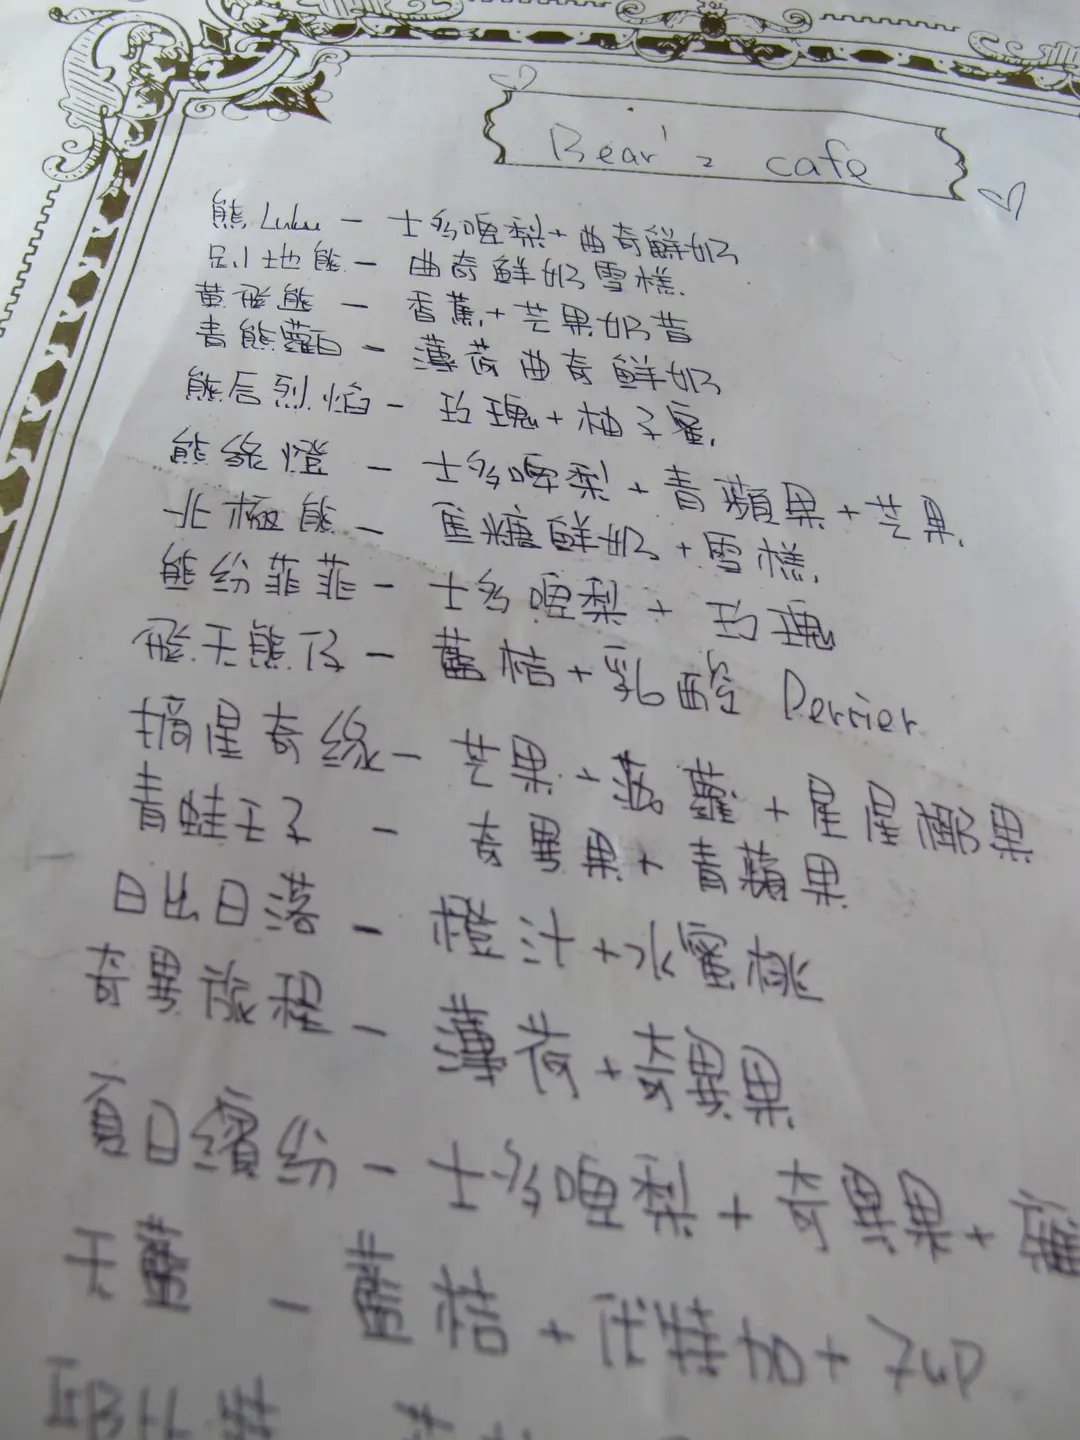 Bear's cafe
熊Lulu - 士多啤梨+曲奇鮮奶
別地熊 - 曲奇鮮奶雪糕
黃飛熊 - 香蕉+芒果奶昔
青熊蘿白 - 薄荷曲奇鮮奶
熊后烈焰 - 玫瑰+柚子蜜
熊綠燈 - 士多啤梨+青蘋果+芒果
北極熊 - 蕉糖鮮奶+雪糕
熊紛菲菲 - 士多啤梨+玫瑰
飛天熊仔 - 藍桔+乳酸 Perrier
摘星奇緣 - 芒果+菠蘿+星星椰果
青蛙王子 - 奇異果+青蘋果
日出日落 - 橙汁+水蜜桃
奇異旅程 - 薄荷+奇異果
夏日繽紛 - 士多啤梨+奇異果+
天藍 - 藍桔+伏特加+7up